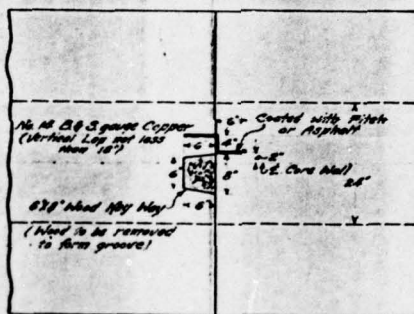 No. 18 B.& S. gauge Copper
(Vertical Lap not less
than 18")
6"
Coated with Pitch
or Asphalt
6"
4"
2"
¢ Core Wall
24"
6"
8"
6"
6x8" Wood Key Way
(Wood to be removed
to form groove)